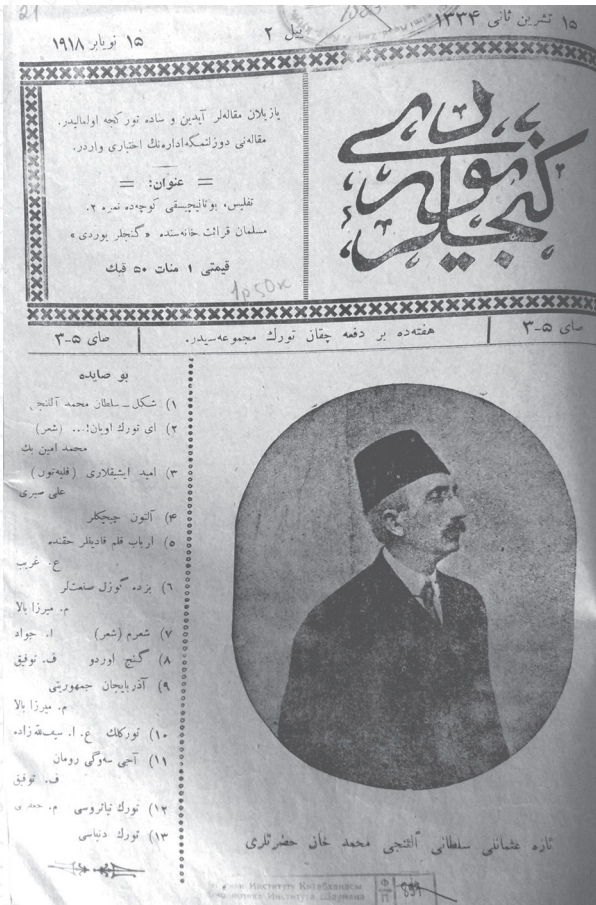 21
۱۵ تشرین ثانی ۱۳۳۴
ییل ۲
۱۵ نویابر ۱۹۱۸
گنجلر یوردی
یازیلان مقاله‌لر آیدین و ساده تورکجه اولمالیدر.
مقاله‌نی دوزلتمکه اداره‌نك اختیاری واردر.
= عنوان: =
تفلیس، بوتانیچیسقی کوچه‌ده نمره ۲.
مسلمان قرائت خانه‌سنده «گنجلر یوردی»
قیمتی ۱ منات ۵۰ قپك
1р50к
صای ۵-۳
هفته‌ده بر دفعه چقان تورك مجموعه‌سیدر.
صای ۵-۳
بو صایده
۱) شکل ـ سلطان محمد آلتنجی
۲) ای تورك اویان!... (شعر)
محمد امین بك
۳) امید ایشیقلاری
علی صبری
۴) آلتون چیچکلر
۵) ارباب قلم قادینلر حقنده
ع. غریب
۶) بزده گوزل صنعتلر
م. میرزا بالا
۷) شعرم (شعر) ا. جواد
۸) گنج اوردو ف. توفیق
۹) آذربایجان جمهوریتی
م. میرزا بالا
۱۰) تورکلك ع. ا. سیف‌الله‌زاده
۱۱) آجی سه‌وگی رومان
ف. توفیق
۱۲) تورك تیاتروسی م.
۱۳) تورك دنیاسی
تازه عثمانلی سلطانی آلتنجی محمد خان حضرتلری
Институт
Библиотека Института
Ф
П